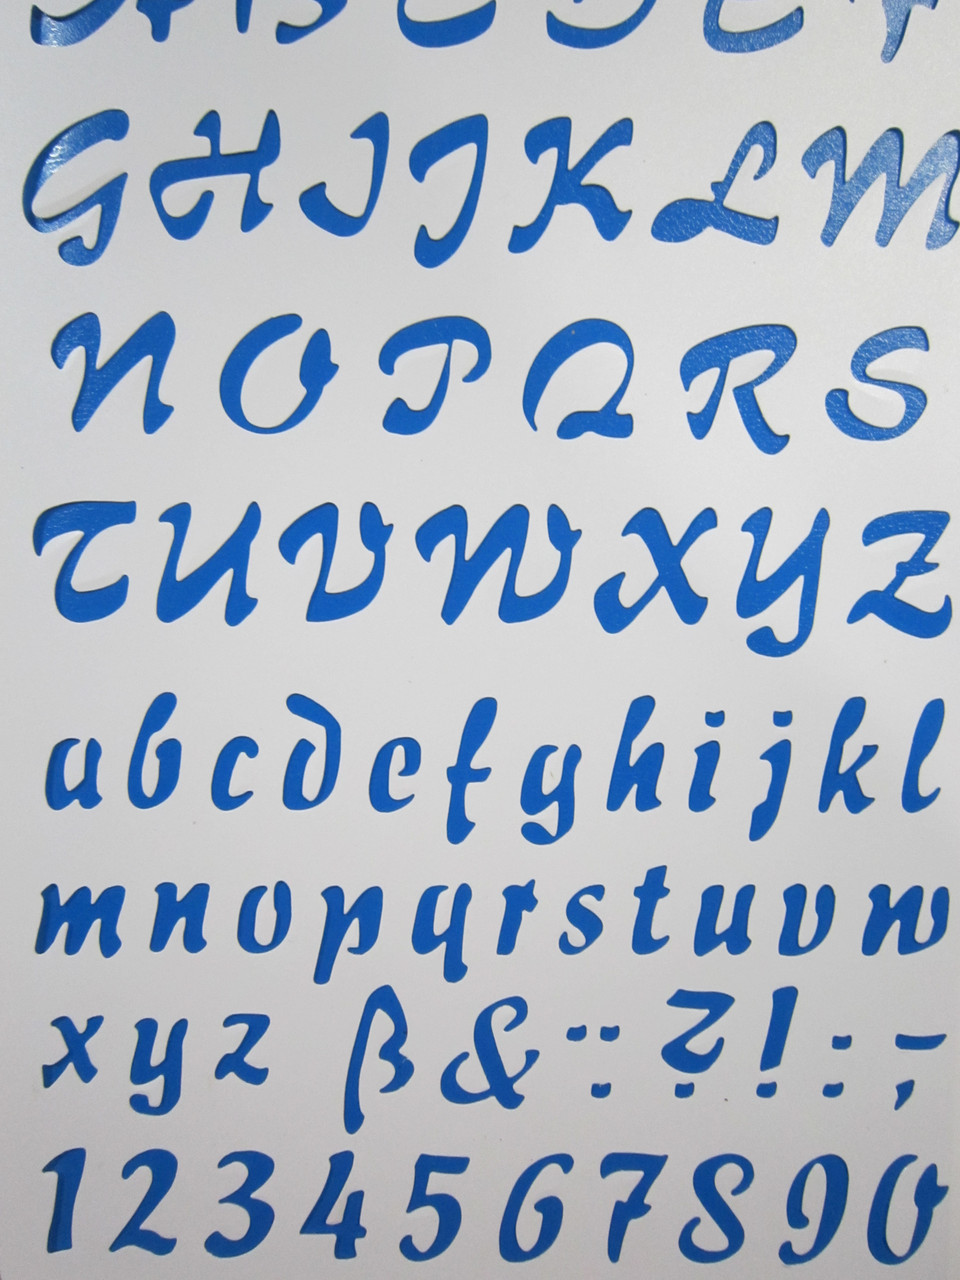 ABCDEF
GHIJKLM
NOPQRS
TUVWXYZ
abcdefghijkl
mnopqrstuvw
xyz ß& ¨. ?! : -,
1234567890